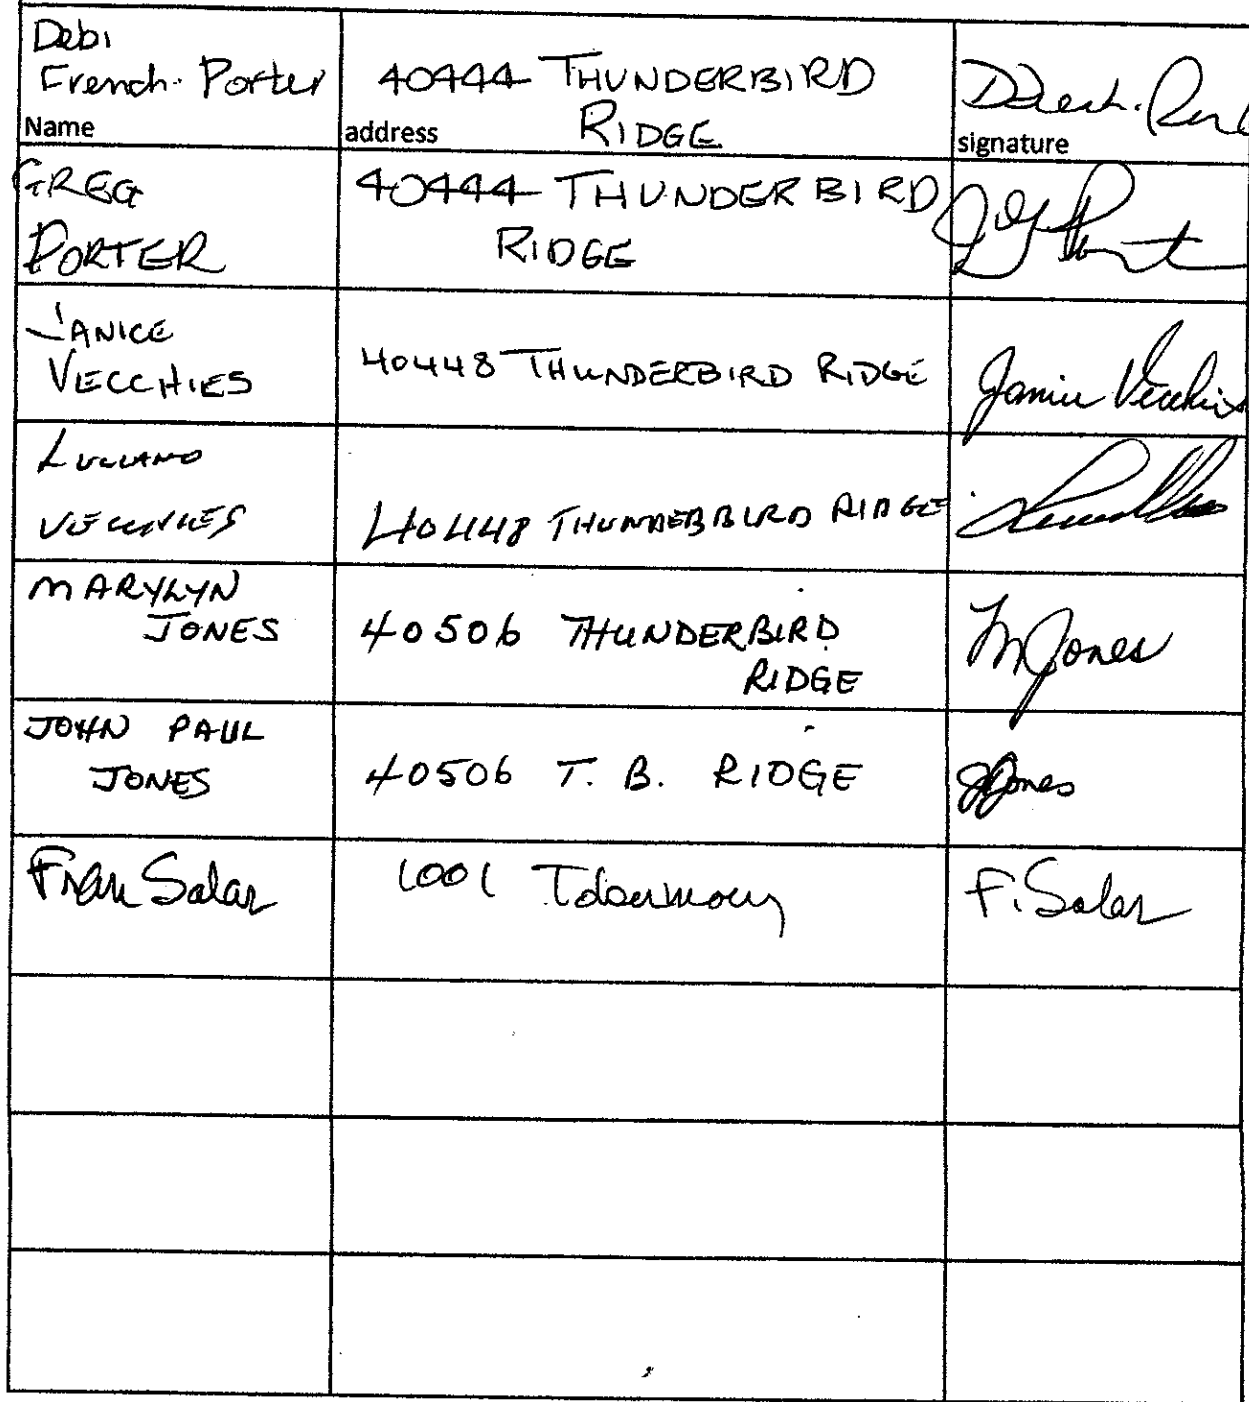 Debi
French-Porter
Name
40444 THUNDERBIRD
RIDGE
address
signature
GREG
PORTER
40444 THUNDERBIRD
RIDGE
JANICE
VECCHIES
40448 THUNDERBIRD RIDGE
Janice Vecchies
LUCIANO
VECCHIES
40448 THUNDERBIRD RIDGE
MARYLYN
JONES
40506 THUNDERBIRD
RIDGE
M Jones
JOHN PAUL
JONES
40506 T. B. RIDGE
JJones
Fran Salar
1001
F. Salar